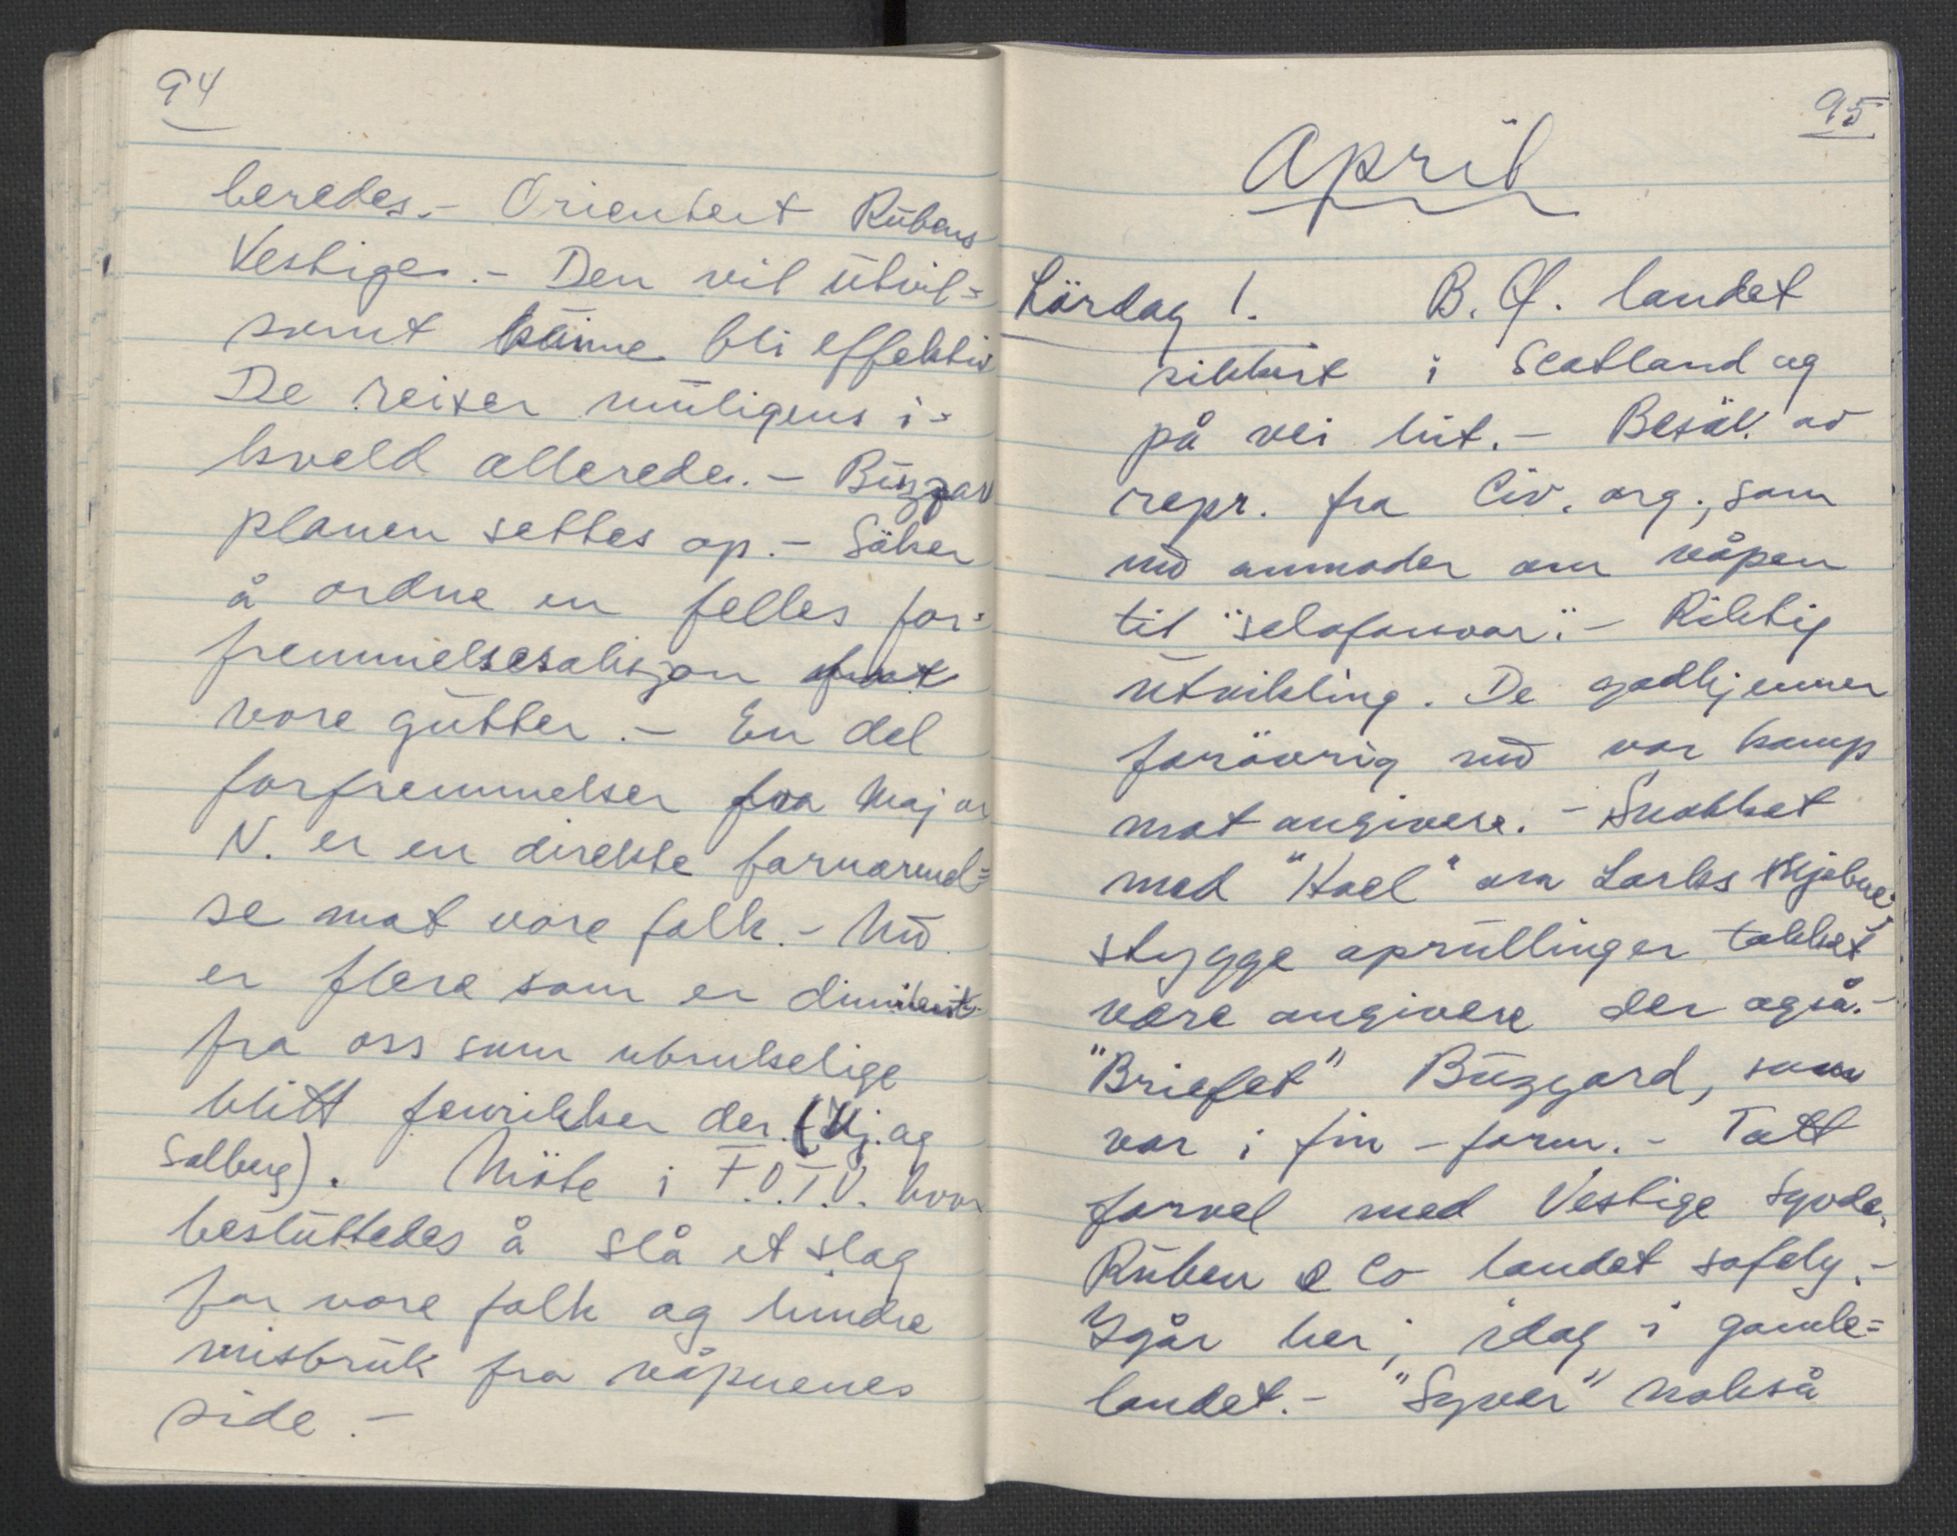 94
beredes.- Orientert Rubens
Vestiges.- Den vil utvil=
somt kunne bli effektiv
De reiser muligens i=
kveld allerede.- Buzzar
planen settes op.- Söker
å ordne en felles for=
fremmelsesaksjon
vore gutter.- En del
forfremmelser fra Major
N. er en direkte fornærmel=
se mot vore folk.- Nu
er flere som er dimitert
fra oss som ubrukelige
blitt fenrikker der. og
Solberg). Möte i F.O.T.U. hvor
besluttedes å slå et slag
for vore folk og hindre
misbruk fra våpnenes
side.-
95
April
Lördag 1. B.Q. landet
sikkert i Scotland og
på vei hit.- Besök av
repr. fra Civ. org., som
nu anmoder om våpen
til "selvforsvar".- Riktig
utvikling. De godkjenner
forövrig nu vor kamp
mot angivere.- Snakket
med "Hael" om Larks
stygge oprullinger takket
være angivere der også.-
"Briefet" Buzzard, som
var i fin-form.- Tatt
farvel med Vestige
Ruben & Co landet safely.-
Igår her; idag i gamle=
landet.- "Syver" också